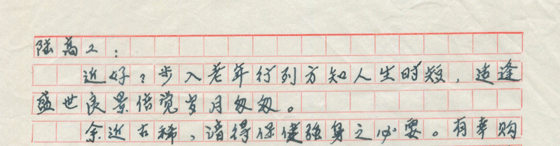 陆高工：
近好？步入老年行列方知人生时短，适逢
盛世良景倍觉岁月匆匆。
余近古稀，谙得保健强身之必要。有幸购